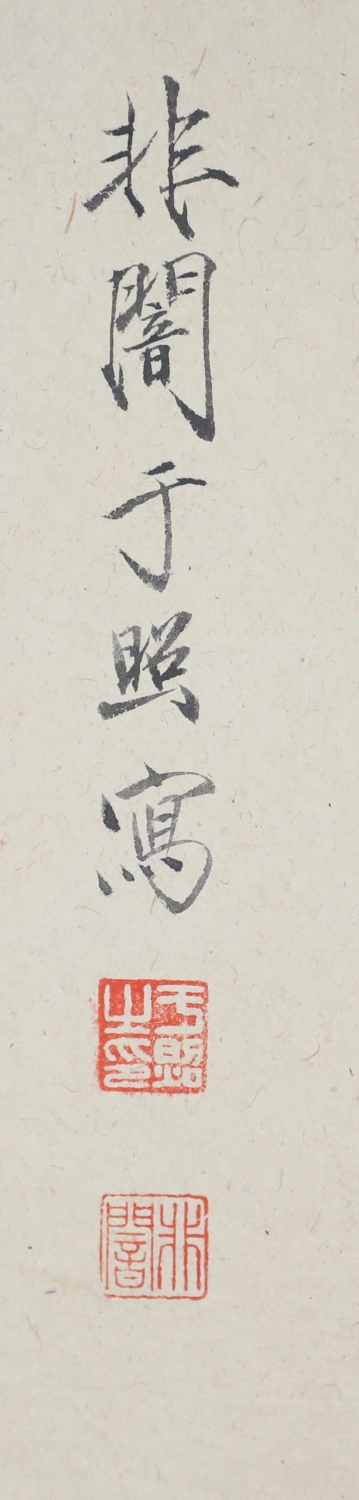 非闇于照寫
于照之印
非闇